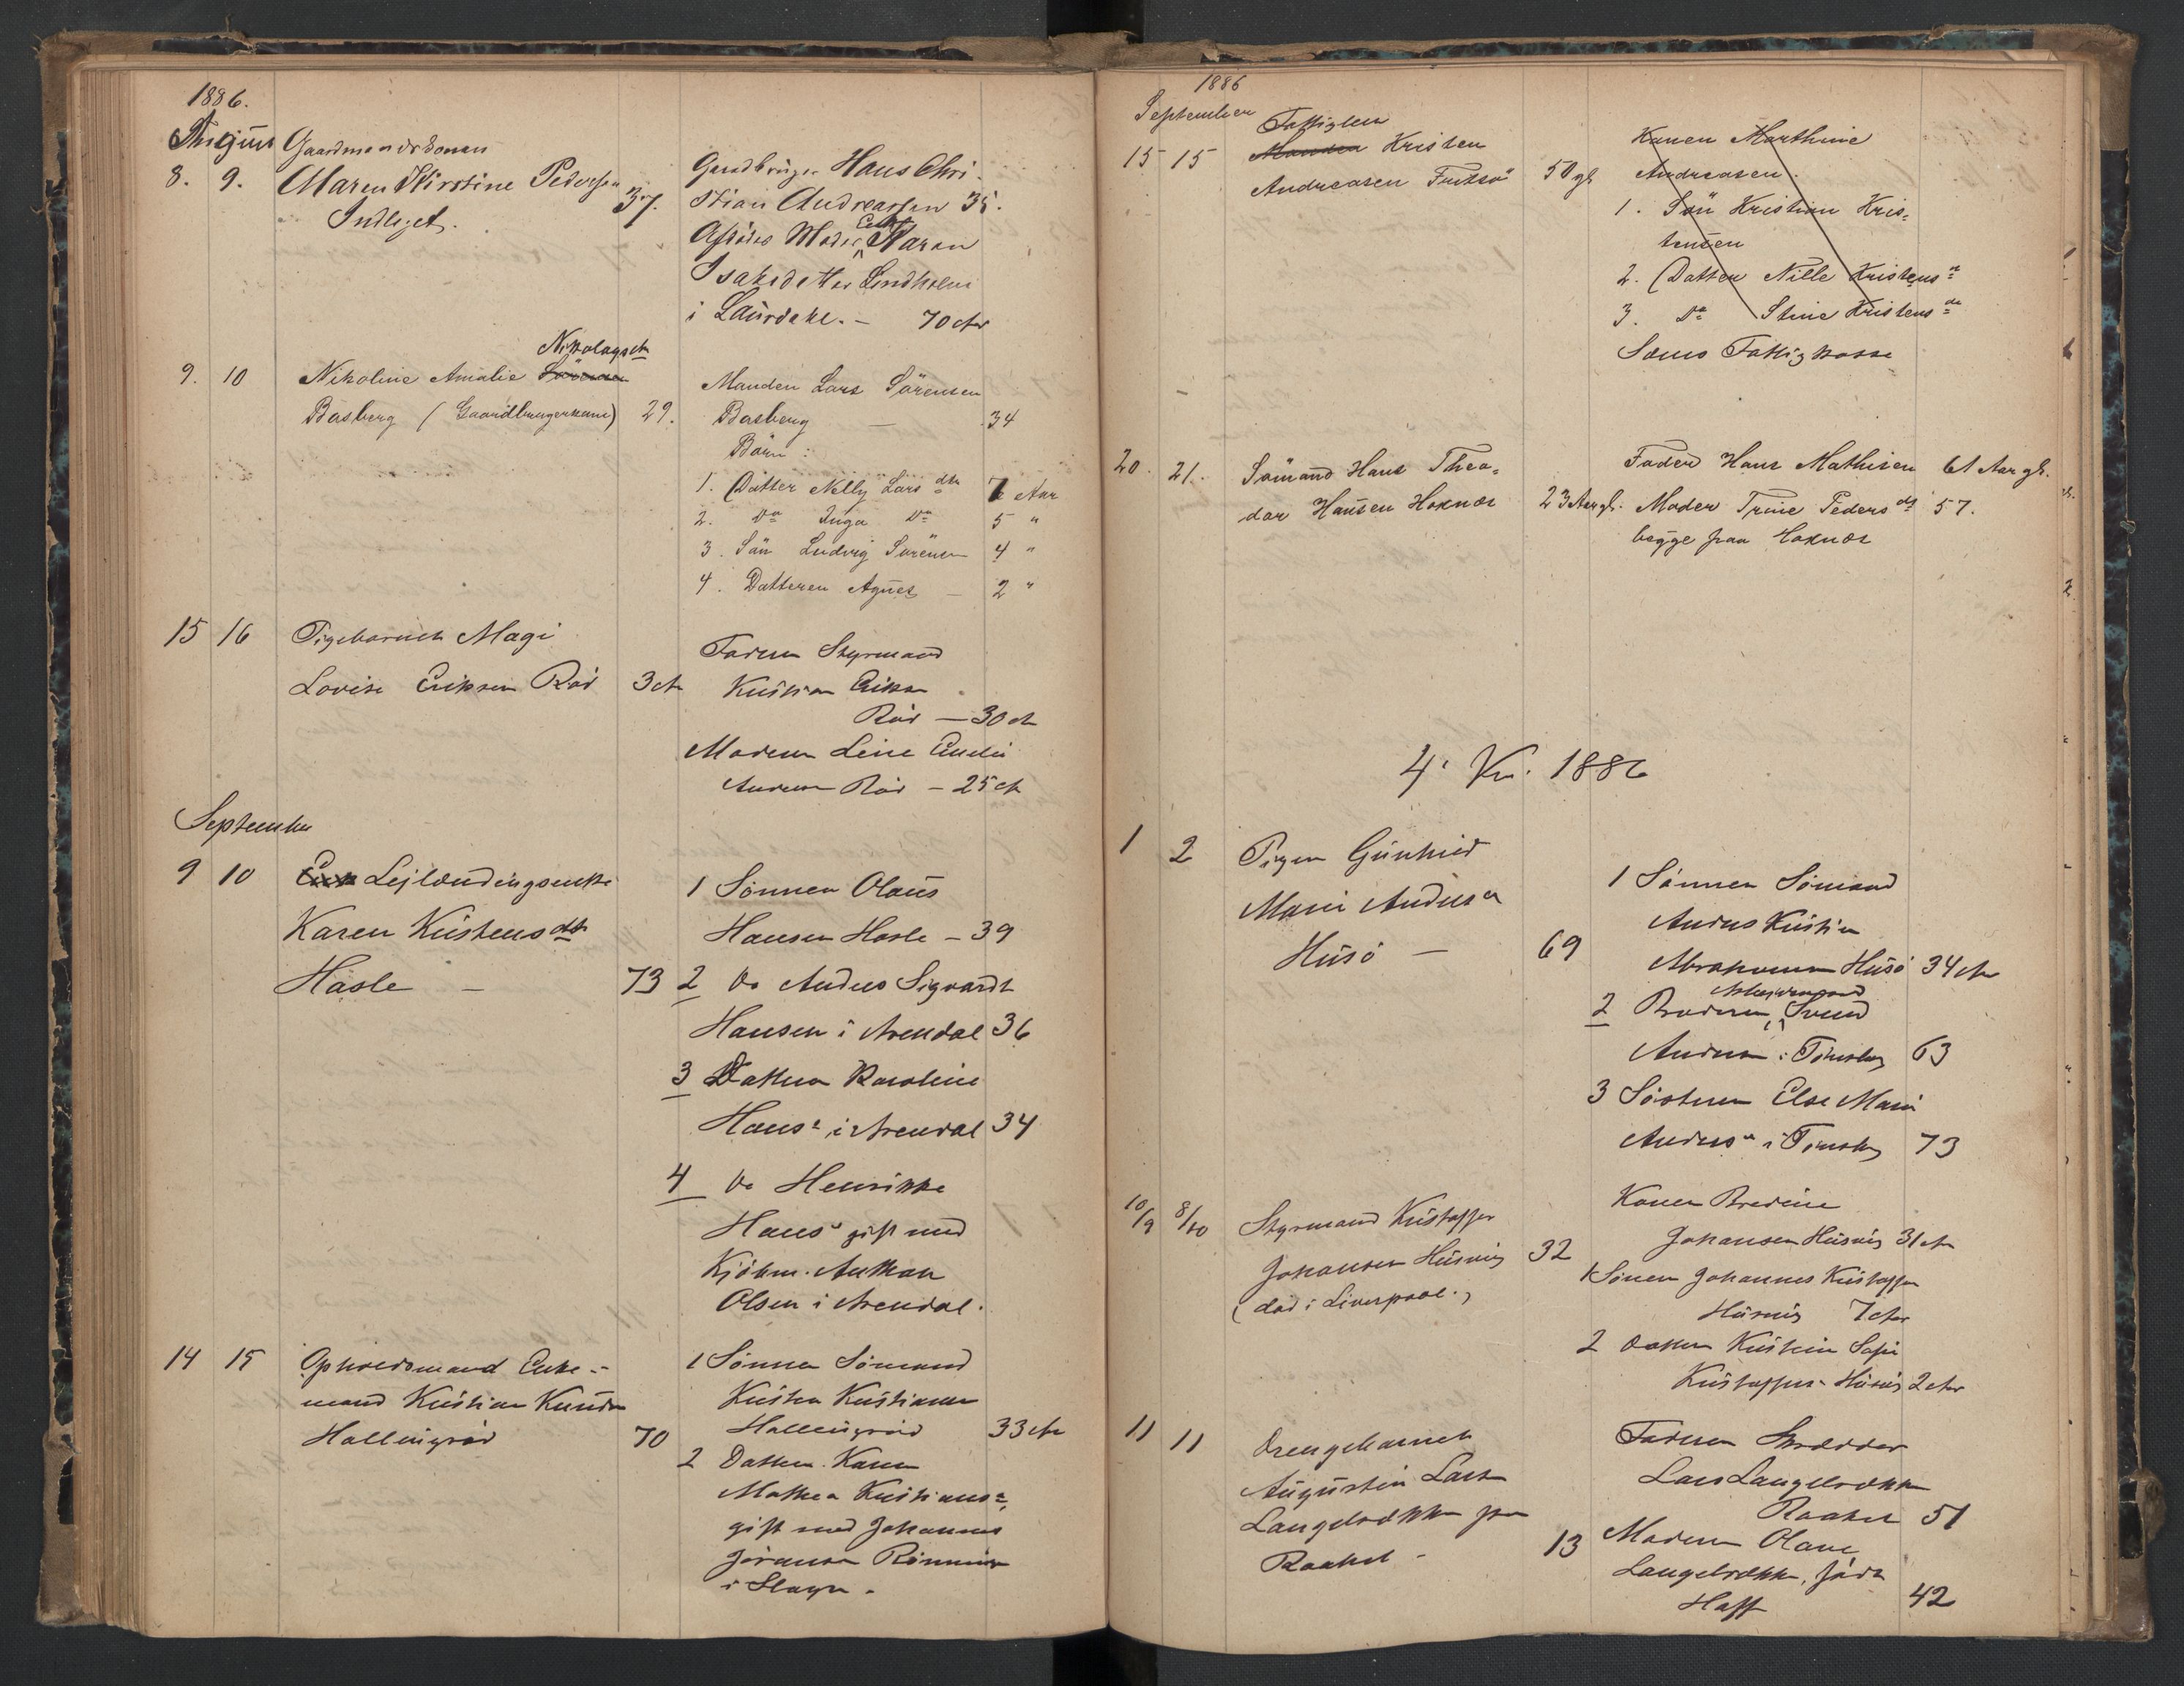 1886.
August Gaardmandskonen
8. 9. Maren Kirstine Pedersen 37.
Indlaget.
Gaardbruger Hans Chri-
stian Andreassen 35.
Afdødes Moder Enke Karen
Isaksdatter Lindholm
i Laurdahl. — 70 Aar
Nikolaysdtr
9. 10 Nikoline Amalie Sørensen
Basberg (Gaardbrugerkone) 29.
Manden Lars Sørensen
Basberg — 34
Børn:
1. Datter Nelly Larsdtr 7 Aar
2. Do Inga Do 5 "
3. Søn Ludvig Sørensen 4 "
4. Datteren Agnes — 2 "
15 16 Pigebarnet Magi
Lovise Eriksen Rød 3 Aar
Faderen Styrmand
Kristian Eriksen
Rød — 30 Aar
Moderen Line
Andersen Rød — 25 Aar
September
9 10 Enke Leilændingsenke
Karen Kristensdtr
Hasle — 73
1 Sønnen Olaus
Hansen Hasle — 39
2 Do Anders Sigvardt
Hansen i Arendal 36
3 Datteren Karoline
Hansn i Arendal 34
4 Do Henrikke
Hansn gift med
Kjøbm. Anthon
Olsen i Arendal.
14 15 Opholdsmand Enke-
mand Kristian Knudsen
Hallingrød 70
1 Sønnen Sømand
Kristen Kristiansen
Hallingrød 33 Aar
2 Datteren Karen
Mathea Kristiansn,
gift med Johannes
Gøransen Rønningen
i Slagn.
1886
September Fattiglem
15 15 Manden Kristen
Andreasen 50 gl.
Konen Marthine
Andreasen.
1. Søn Kristian Kris-
tensen
2. Datter Nille Kristensn
3. Do Stine Kristensdr
Sæms Fattigkasse
20. 21. Sømand Hans Theo-
dor Hansen Hoxnæs 23 Aar gl.
Fader Hans Mathisen 61 Aar gl.
Moder Trine Pedersdt 57.
begge paa Hoxnæs
4. Kv. 1886
1 2 Pigen Gunhild
Marie Andersn
Husø — 69
1 Sønnen Sømand
Anders Kristian
Abrahamsen Husø 34 Aar
Arbeidsmand
2 Broderen Svend
Andersen i Tønsberg 63
3 Søsteren Else Marie
Andersn i Tønsberg 73
10/9 8/10 Styrmand Kristoffer
Johansen Husvig 32
(død i Liverpool.)
Konen Bredine
Johansen Husvig 31 Aar
1 Sønnen Johannes Kristoffersen
Husvig 7 Aar
2 Datteren Kristine Sofie
Kristoffersen Husvig 2 Aar
11 11 Drengebarnet
Augustin Larsen
Langebrække paa
Raakel — 13
Faderen Skrædder
Lars Langebrække
Raakel 51
Moderen Olave
Langebrække, født
Haff 42